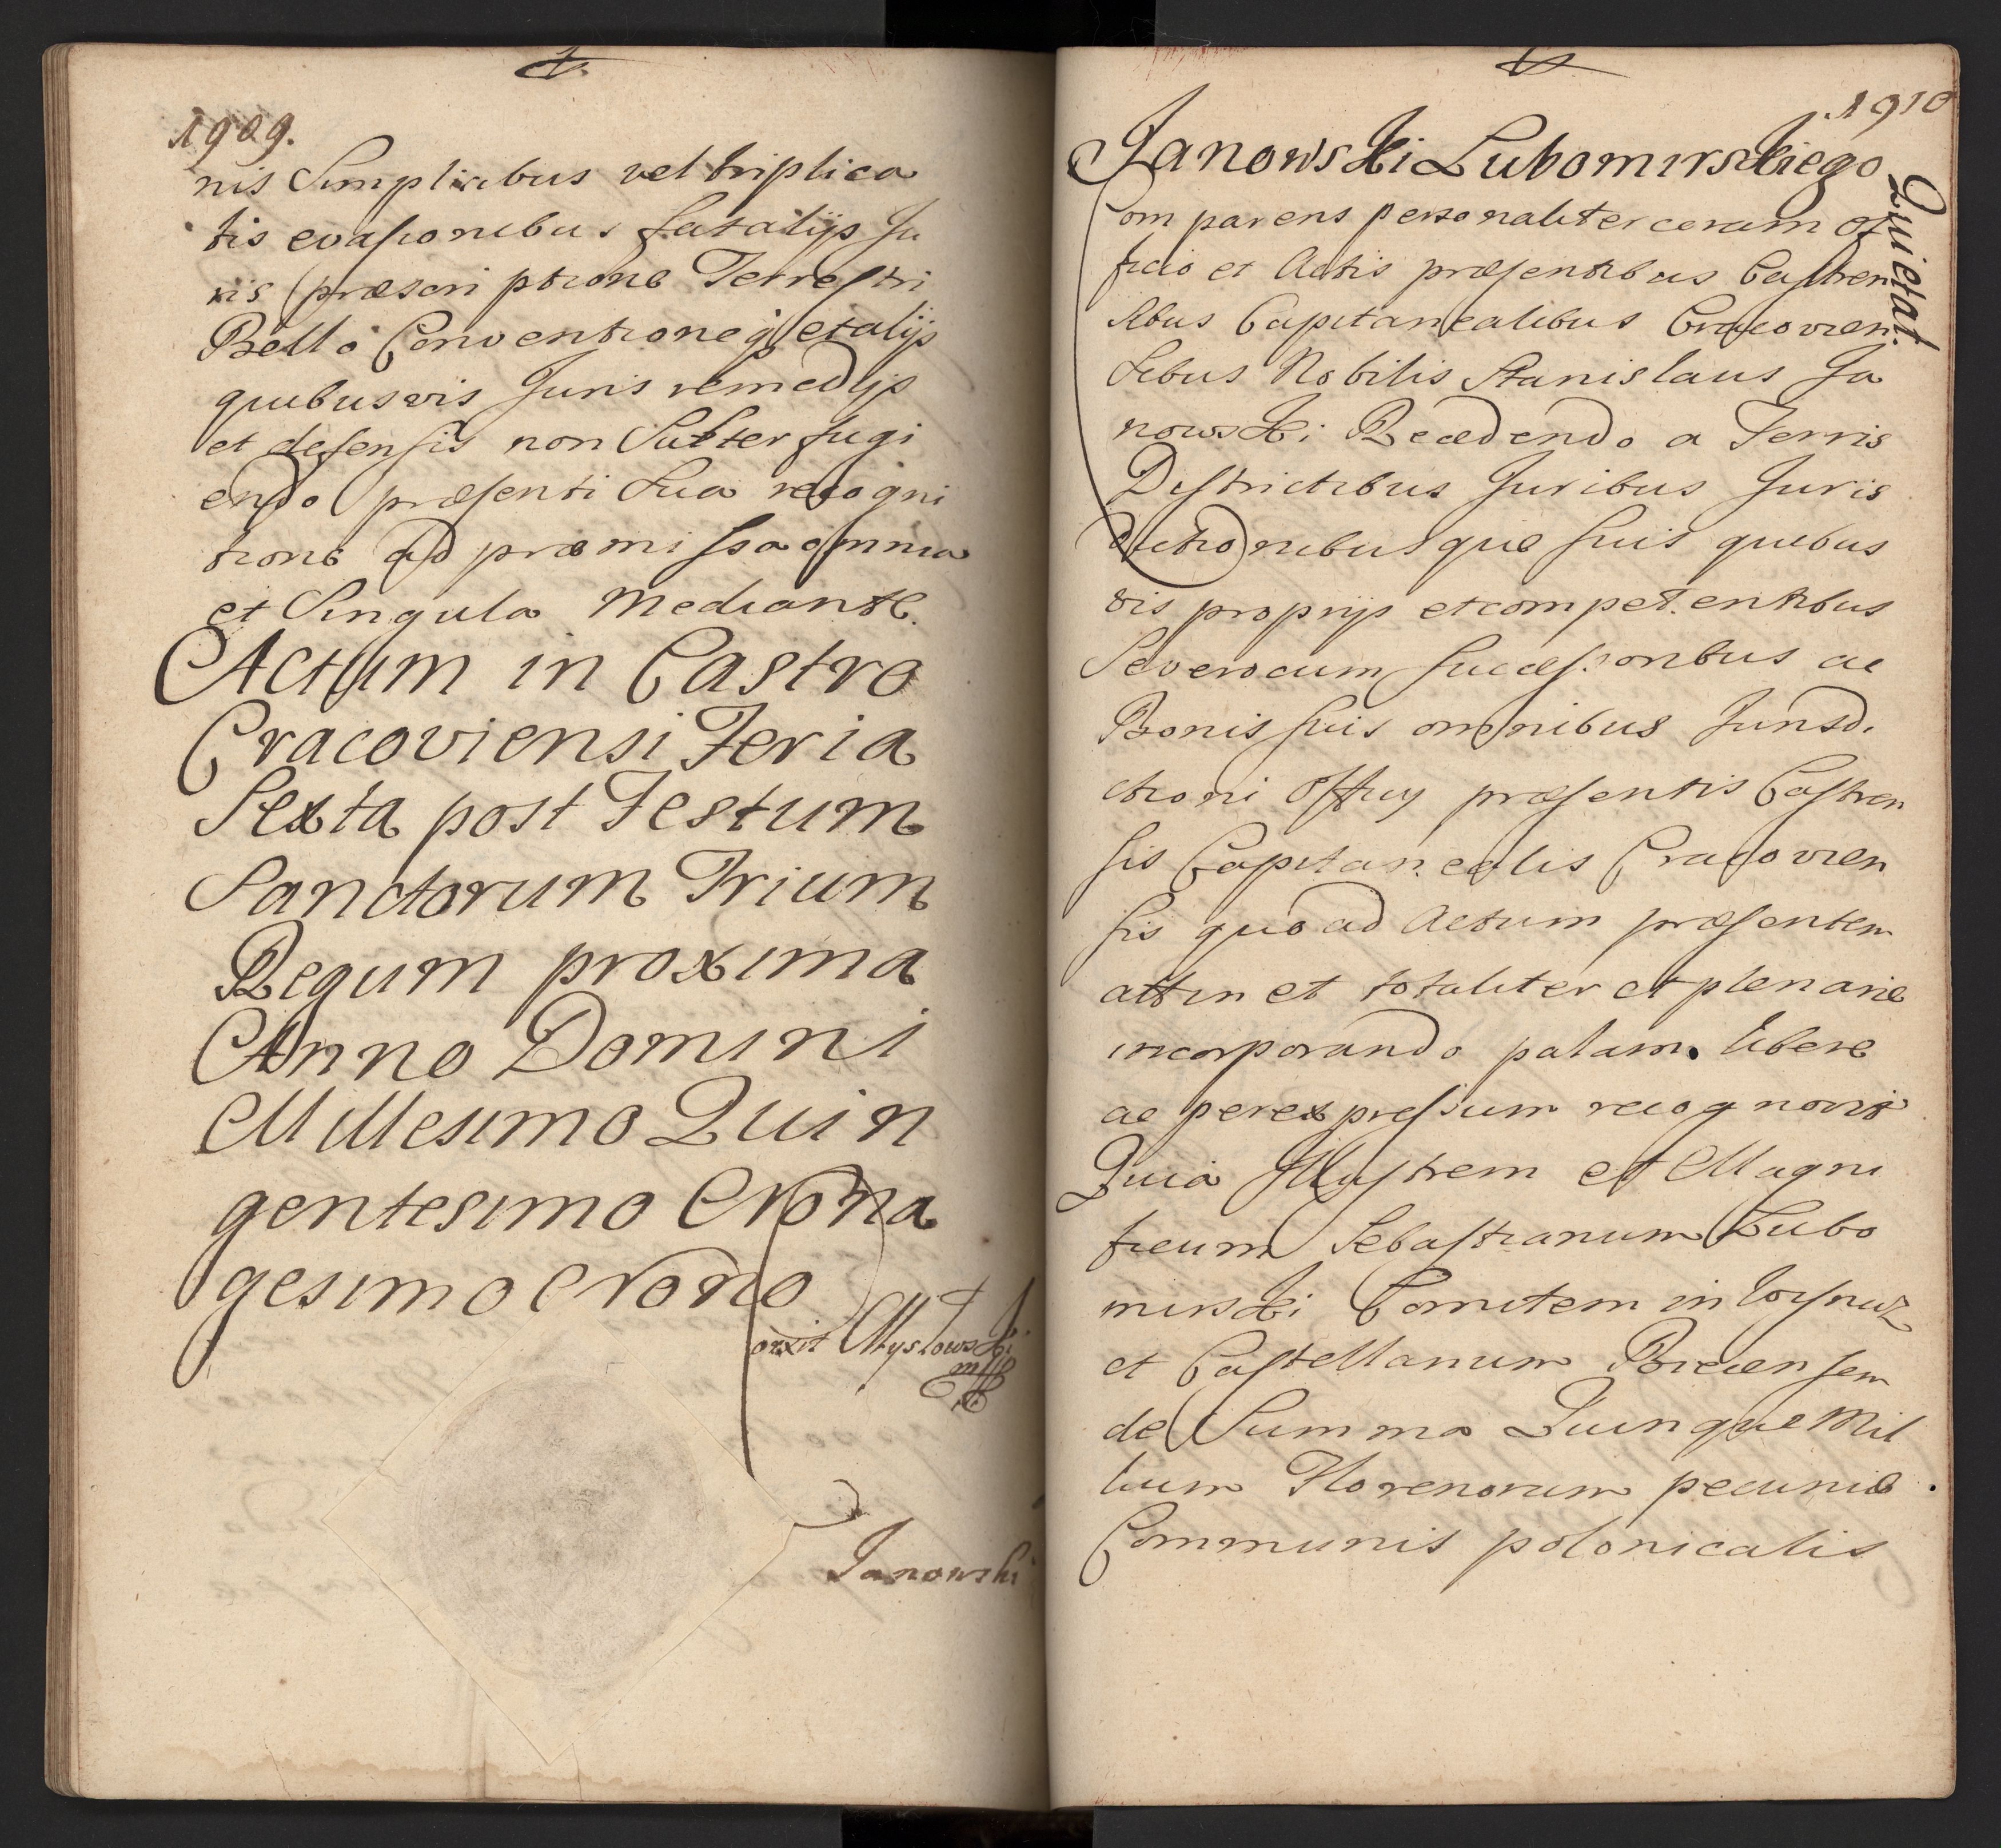 1909.
nis Simplicibus vel triplica
tis evasionibus fatalijs Ju
ris præscriptione Terrestri
Bello Conventioneq; et alijs
quibusvis Juris remedijs
et defensis non Subterfugi
endo præsenti Sua recogni
tione ad præmissa omnia
et Singula Mediante.
Actum in Castro
Cracoviensi Feria
Sexta post Festum
Sanctorum Trium
Regum proxima
Anno Domini
Millesimo Quin
gentesimo Nona
gesimo Nono
Janowski
1910
Janowski Lubomirskiego
Quietat.
Comparens personaliter coram of
ficio et Actis præsentibus Castren
sibus Capitanealibus Cracovien
sibus Nobilis Stanislaus Ja
nowski Recedendo a Terris
Districtibus Juribus Juris
dictionibusque suis quibus
vis proprijs et competentibus
Severocum Successoribus ac
Bonis suis omnibus Jurisdi
ctioni Officij præsentis Castren
sis Capitanealis Cracovien
sis quo ad Actum præsentem
attinet totaliter et plenarie
incorporando palam libere
ac per expressum recognovit
Quia Illustrem et Magni
ficum Sebastianum Lubo
mirski Comitem in Wisnicz
et Castellanum Biecensem
de Summa Quinque Mil
lium Florenorum pecuniæ
Communis polonicalis